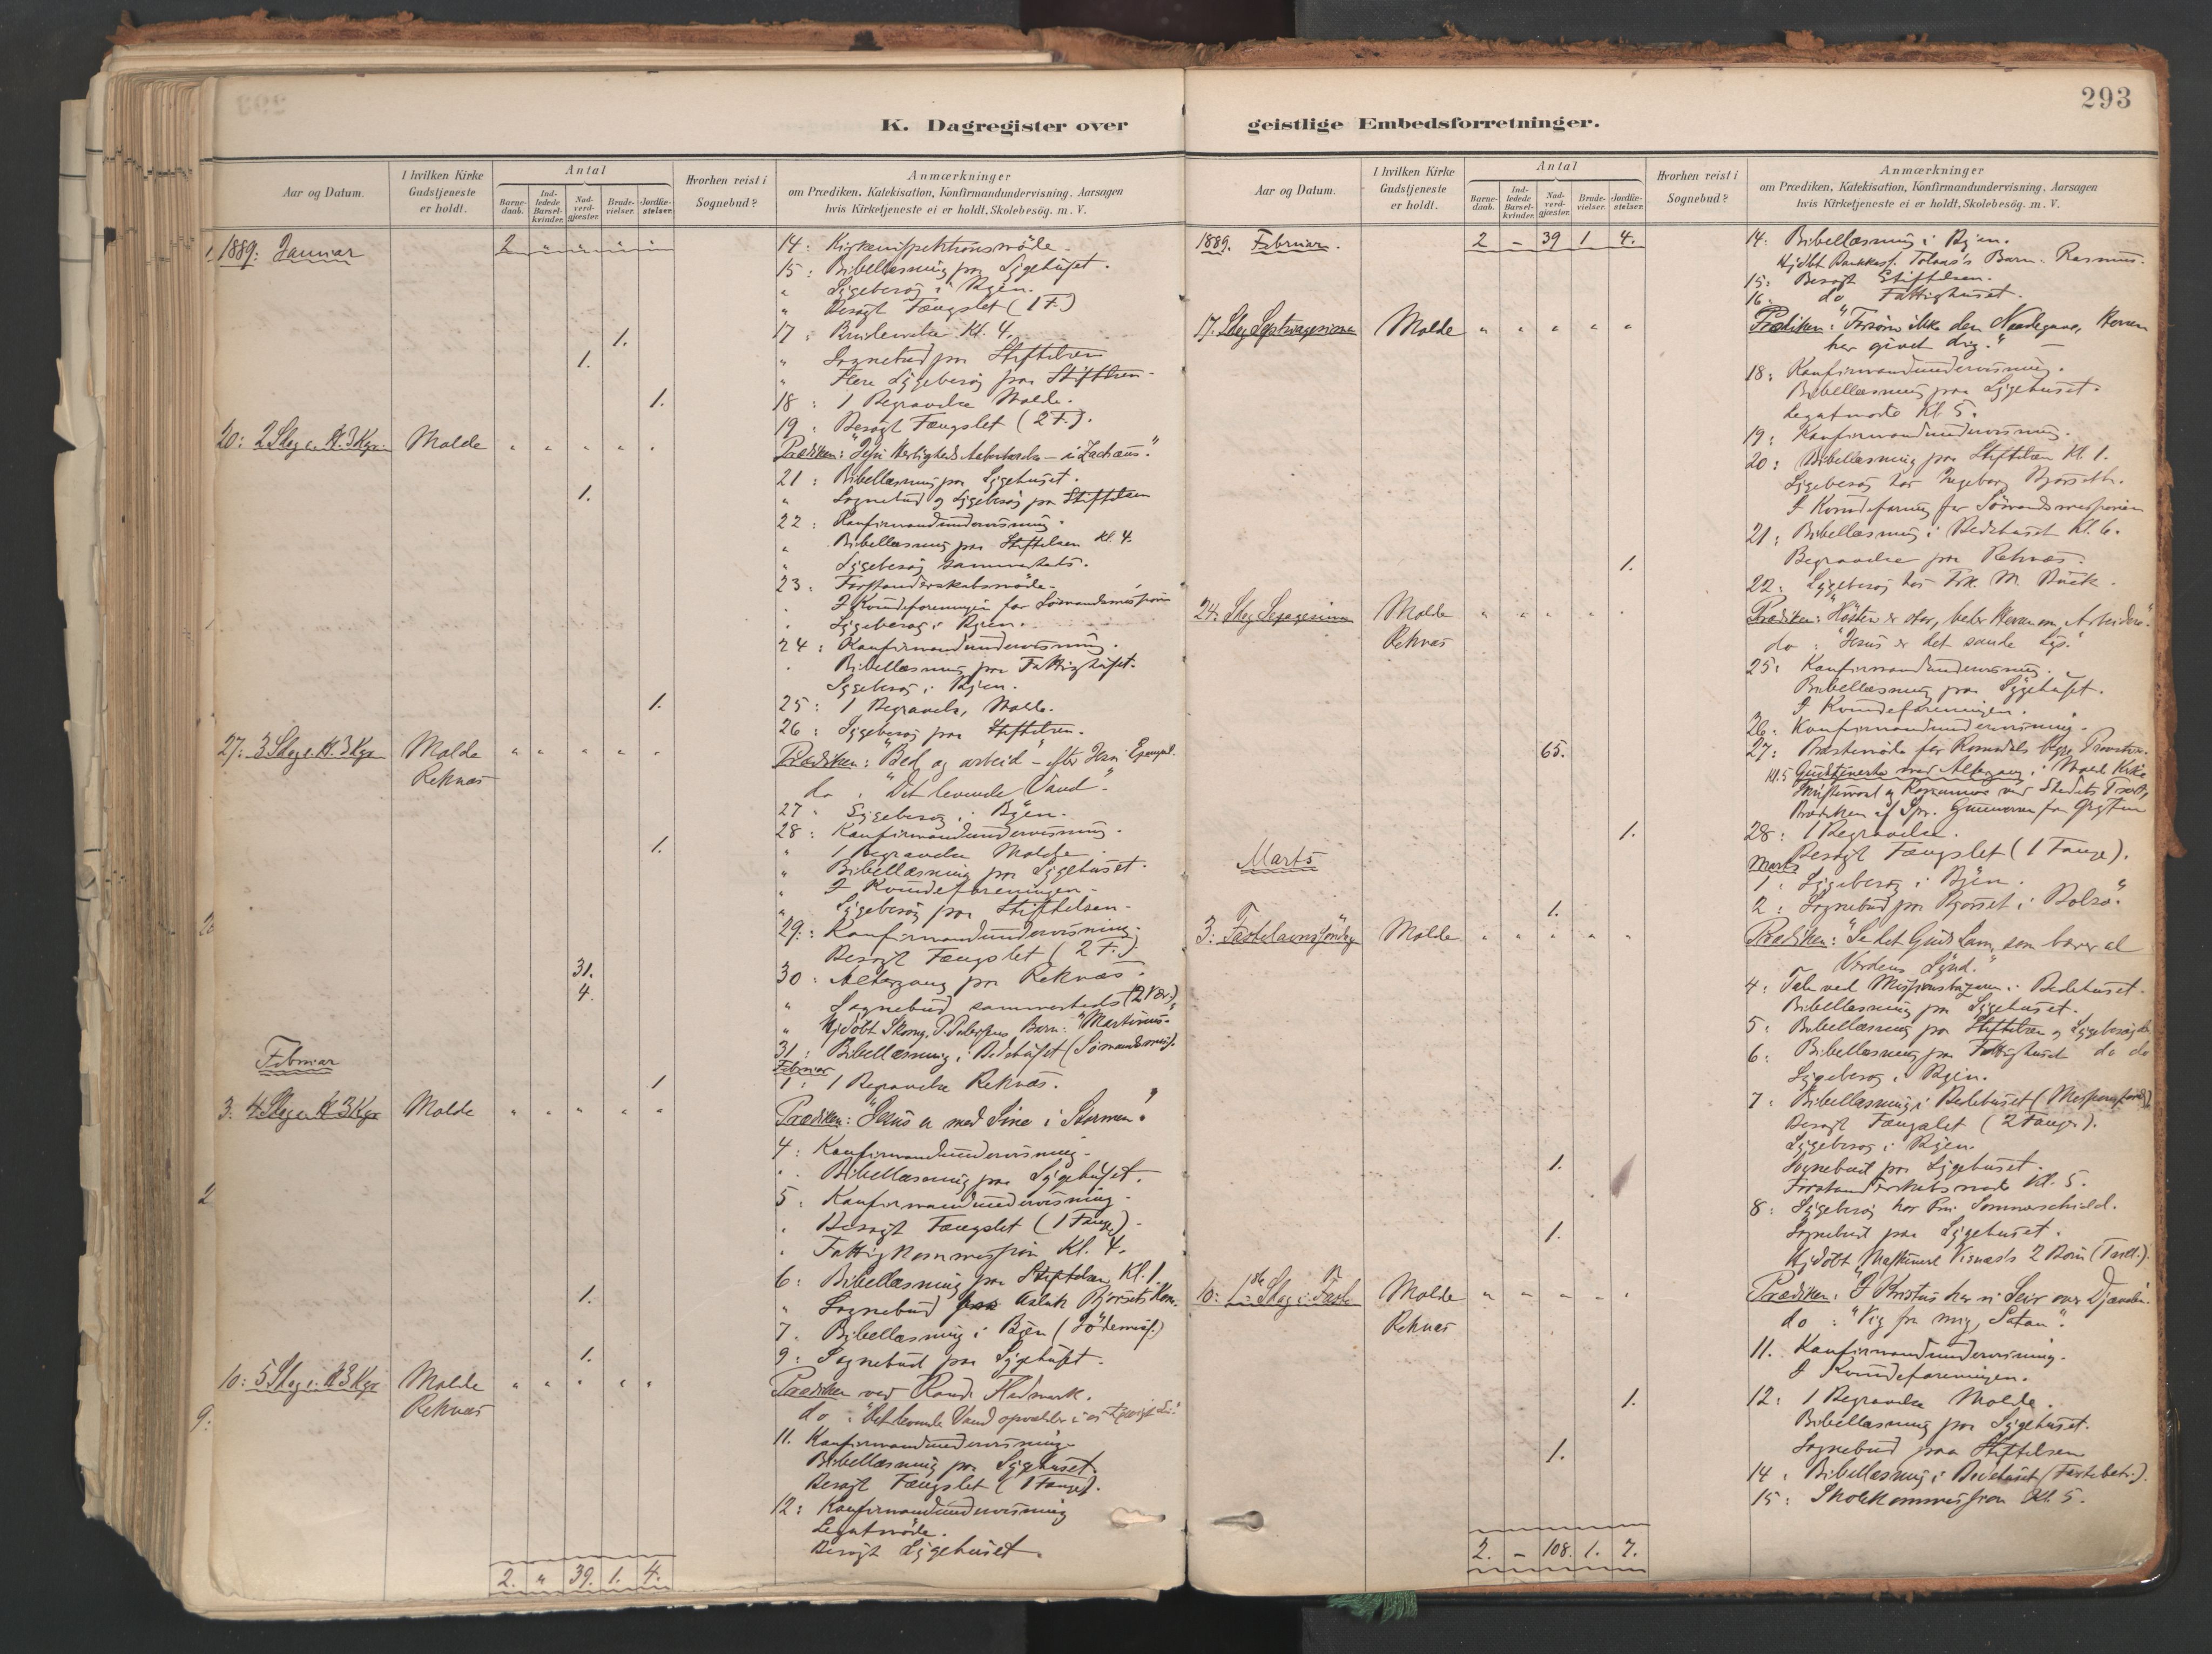 293
K. Dagregister over
geistlige Embedsforretninger.
Aar og Datum.
I hvilken Kirke Gudstjeneste er holdt.
Antal
Barne-daab.
Ind-ledede Barsel-kvinder.
Nad-verd-gjæster.
Brude-vielser.
Jordfæ-stelser.
Hvorhen reist i Sognebud?
Anmærkninger
om Prædiken, Katekisation, Konfirmandundervisning, Aarsagen
hvis Kirketjeneste ei er holdt, Skolebesög. m. V.
1889: Januar 2 " " " "
14: möde.
15: Bibellæsning paa Sygehuset.
" Sygebesög i Byen.
" Besögt Fængslet (1 F.)
1. 17: Brudevielse Kl. 4.
1. " Sognebud paa Stiftelsen
" Flere Sygebesög paa Stiftelsen.
1. 18: 1 Begravelse Molde.
19: Besögt Fængslet (2 F.).
20: 2 Sdag e. H. 3 Kgr. Molde " " " " "
Prædiken: "Jesu Herligheds Aabenbarelse i Zachæus."
21: Bibellæsning paa Sygehuset.
1. " Sognebud og Sygebesög paa Stiftelsen
22: Konfirmandundervisning.
" Bibellæsning paa Stiftelsen Kl. 4.
" Sygebesög sammesteds.
23: Forstanderskabsmöde.
" I Kvindeforeningen for Sömandsmissionen
" Sygebesög i Byen.
24: Konfirmandundervisning.
" Bibellæsning paa Fattighuset.
Sygebesög i Byen.
1. 25: 1 Begravelse, Molde.
26: Sygebesög paa Stiftelsen.
27: 3 Sdag e. H. 3 Kgr Molde " " " " "
Reknæs
Prædiken: "Bed og arbeid" - efter Jesu Exempel.
do : "Det levende Vand".
27 " Sygebesög i Byen.
28: Konfirmandundervisning.
1. " 1 Begravelse Molde.
" Bibellæsning paa Sygehuset.
" I Kvindeforeningen.
" Sygebesög paa Stiftelsen.
29: Konfirmandundervisning.
Besögt Fængslet (2 F.)
31. 30: Altergang paa Reknæs.
4. " Sognebud sammesteds (2 Vær.)
" Hjdöbt Skomg. P. Pedersens Barn: "Martinus".
31: Bibellæsning i Bedehuset (Sömandsmiss.
Februar
Februar
1 1: 1 Begravelse Reknæs.
3: 4 Sdag e. H 3 Kgr Molde " " " " "
Prædiken: "Jesus er med Sine i Stormen."
4: Konfirmandundervisning.
" Bibellæsning paa Sygehuset.
5: Konfirmandundervisning.
" Besögt Fængslet (1 Fange).
" Fattigkommission Kl. 4.
6: Bibellæsning paa Stiftelsen Kl. 1.
1. " Sognebud Aslak Bjørsets Kone.
7. Bibellæsning i Byen (Jödemiss.)
1. 9: Sognebud paa Sygehuset.
10: 5 Sdag e. H 3 Kgr Molde " " " " "
Reknæs
Prædiken ved Kand. Hedmark.
do : "Det levende Vand opvælder i os til evigt Liv."
11. Konfirmandundervisning
Bibellæsning paa Sygehuset.
Besögt Fængslet (1 Fange).
12: Konfirmandundervisning
Legatmöde.
Besögt Sygehuset.
2. " 39. 1. 4.
Aar og Datum.
I hvilken Kirke Gudstjeneste er holdt.
Antal
Barne-daab.
Ind-ledede Barsel-kvinder.
Nad-verd-gjæster.
Brude-vielser.
Jordfæ-stelser.
Hvorhen reist i Sognebud?
Anmærkninger
om Prædiken, Katekisation, Konfirmandundervisning, Aarsagen
hvis Kirketjeneste ei er holdt, Skolebesög. m. V.
1889. Februar. 2 - 39 1 4.
14: Bibellæsning i Byen.
Hjdöbt Bankkass. Tolaas's Barn. Rasmus.
15: Besögt Stiftelsen.
16: do Fattighuset.
17. Sdag Septuagesima Molde " " " " "
Prædiken: "Forsöm ikke den Naadegave, Herren
har givet dig." -
18: Konfirmandundervisning.
Bibellæsning paa Sygehuset.
Legatmöde Kl 5.
19: Konfirmandundervisning.
20: Bibellæsning paa Stiftelsen Kl. 1.
Sygebesög hos Ingeborg Bjørseth.
I Kvindeforening for Sömandsmissionen
21: Bibellæsning i Bedehuset Kl. 6.
1. Begravelse paa Reknæs.
22: Sygebesög hos Frk. M.
24: Sdag Sexagesima Molde " " " " "
Reknæs
Prædiken: "Hösten er stor, beder Herren om Arbeidere"
do : "Jesus er det sande Lys."
25: Konfirmandundervisning.
Bibellæsning paa Sygehuset.
I Kvindeforeningen.
26. Konfirmandundervisning.
65. 27: Prestemöde for Romsdals Provsti
Kl. 5 Gudstjeneste med Altergang i Molde Kirke
Skriftemaal og Kommunion ved Stedets Prest,
Prædiken af Spr. Gunnerus fra Grytten
1. 28: 1 Begravelse.
Besögt Fængslet (1 Fange).
Marts
Marts
1: Sygebesög i Byen.
1. 2: Sognebud paa Bjørset i Bolsö.
3: Fastelavnssöndag Molde " " " " "
Prædiken: "Se det Guds Lam, som bærer al
Verdens Synd."
4: Tale ved Missionsbazaren i Bedehuset.
Bibellæsning paa Sygehuset.
5: Bibellæsning paa Stiftelsen og Sygebesög do
6: Bibellæsning paa Fattighuset do do
Sygebesög i Byen.
7: Bibellæsning i Bedehuset (Missionsforedr.)
Besögt Fængslet (2 Fanger).
Sygebesög i Byen
1. Sognebud paa Sygehuset.
Forstanderskabsmöde Kl. 5.
8: Sygebesög hos Fru Sommerschield.
1. Sognebud paa Sygehuset.
Hjdöbt Maskinist Visnæs's 2 Börn (Tvill.).
10: 1ste Sdag i Faste Molde " " " " "
Reknæs
Prædiken: "I Kristus har vi Seir over Djævelen.
do : "Vig fra mig, Satan".
11. Konfirmandundervisning.
I Kvindeforeningen.
1. 12: 1 Begravelse Molde.
Bibellæsning paa Sygehuset.
1. Sognebud paa Stiftelsen
14: Bibellæsning i Bedehuset (Fastebetr.).
15: Skolekommission Kl. 5.
2. - 108. 1. 7.